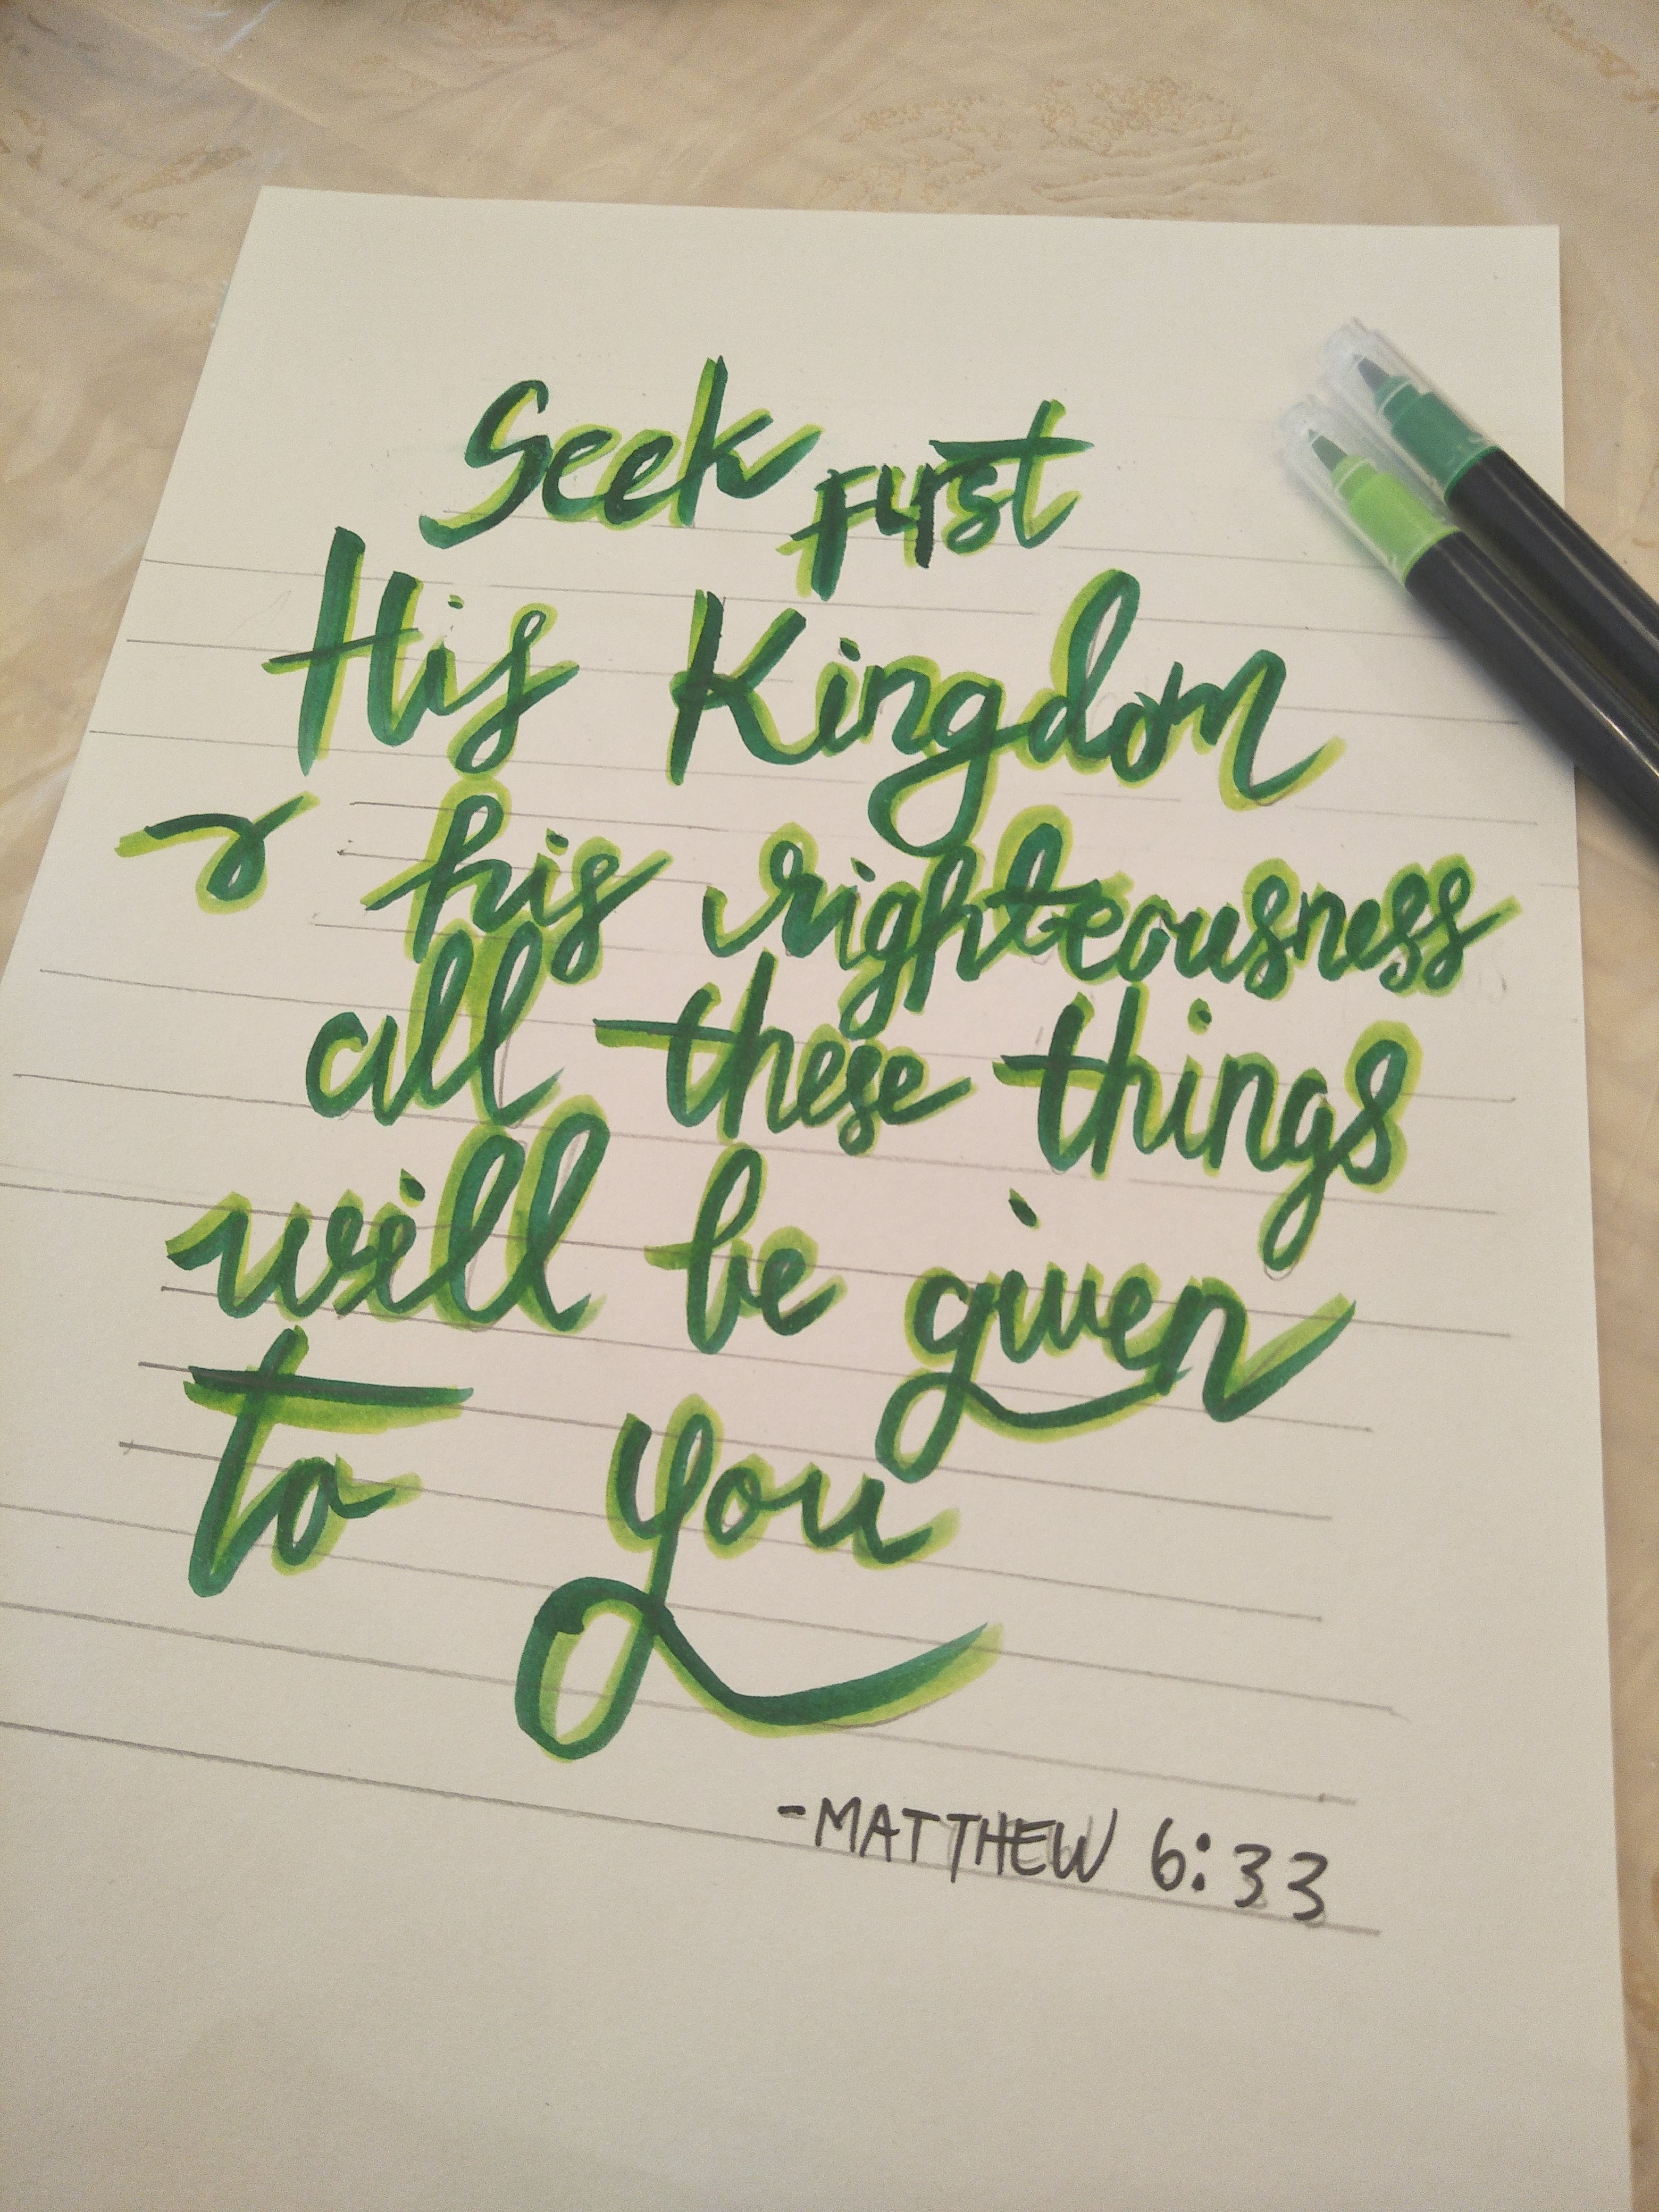 Seek First
His Kingdom
& his righteousness
all these things
will be given
to you
-MATTHEW 6:33